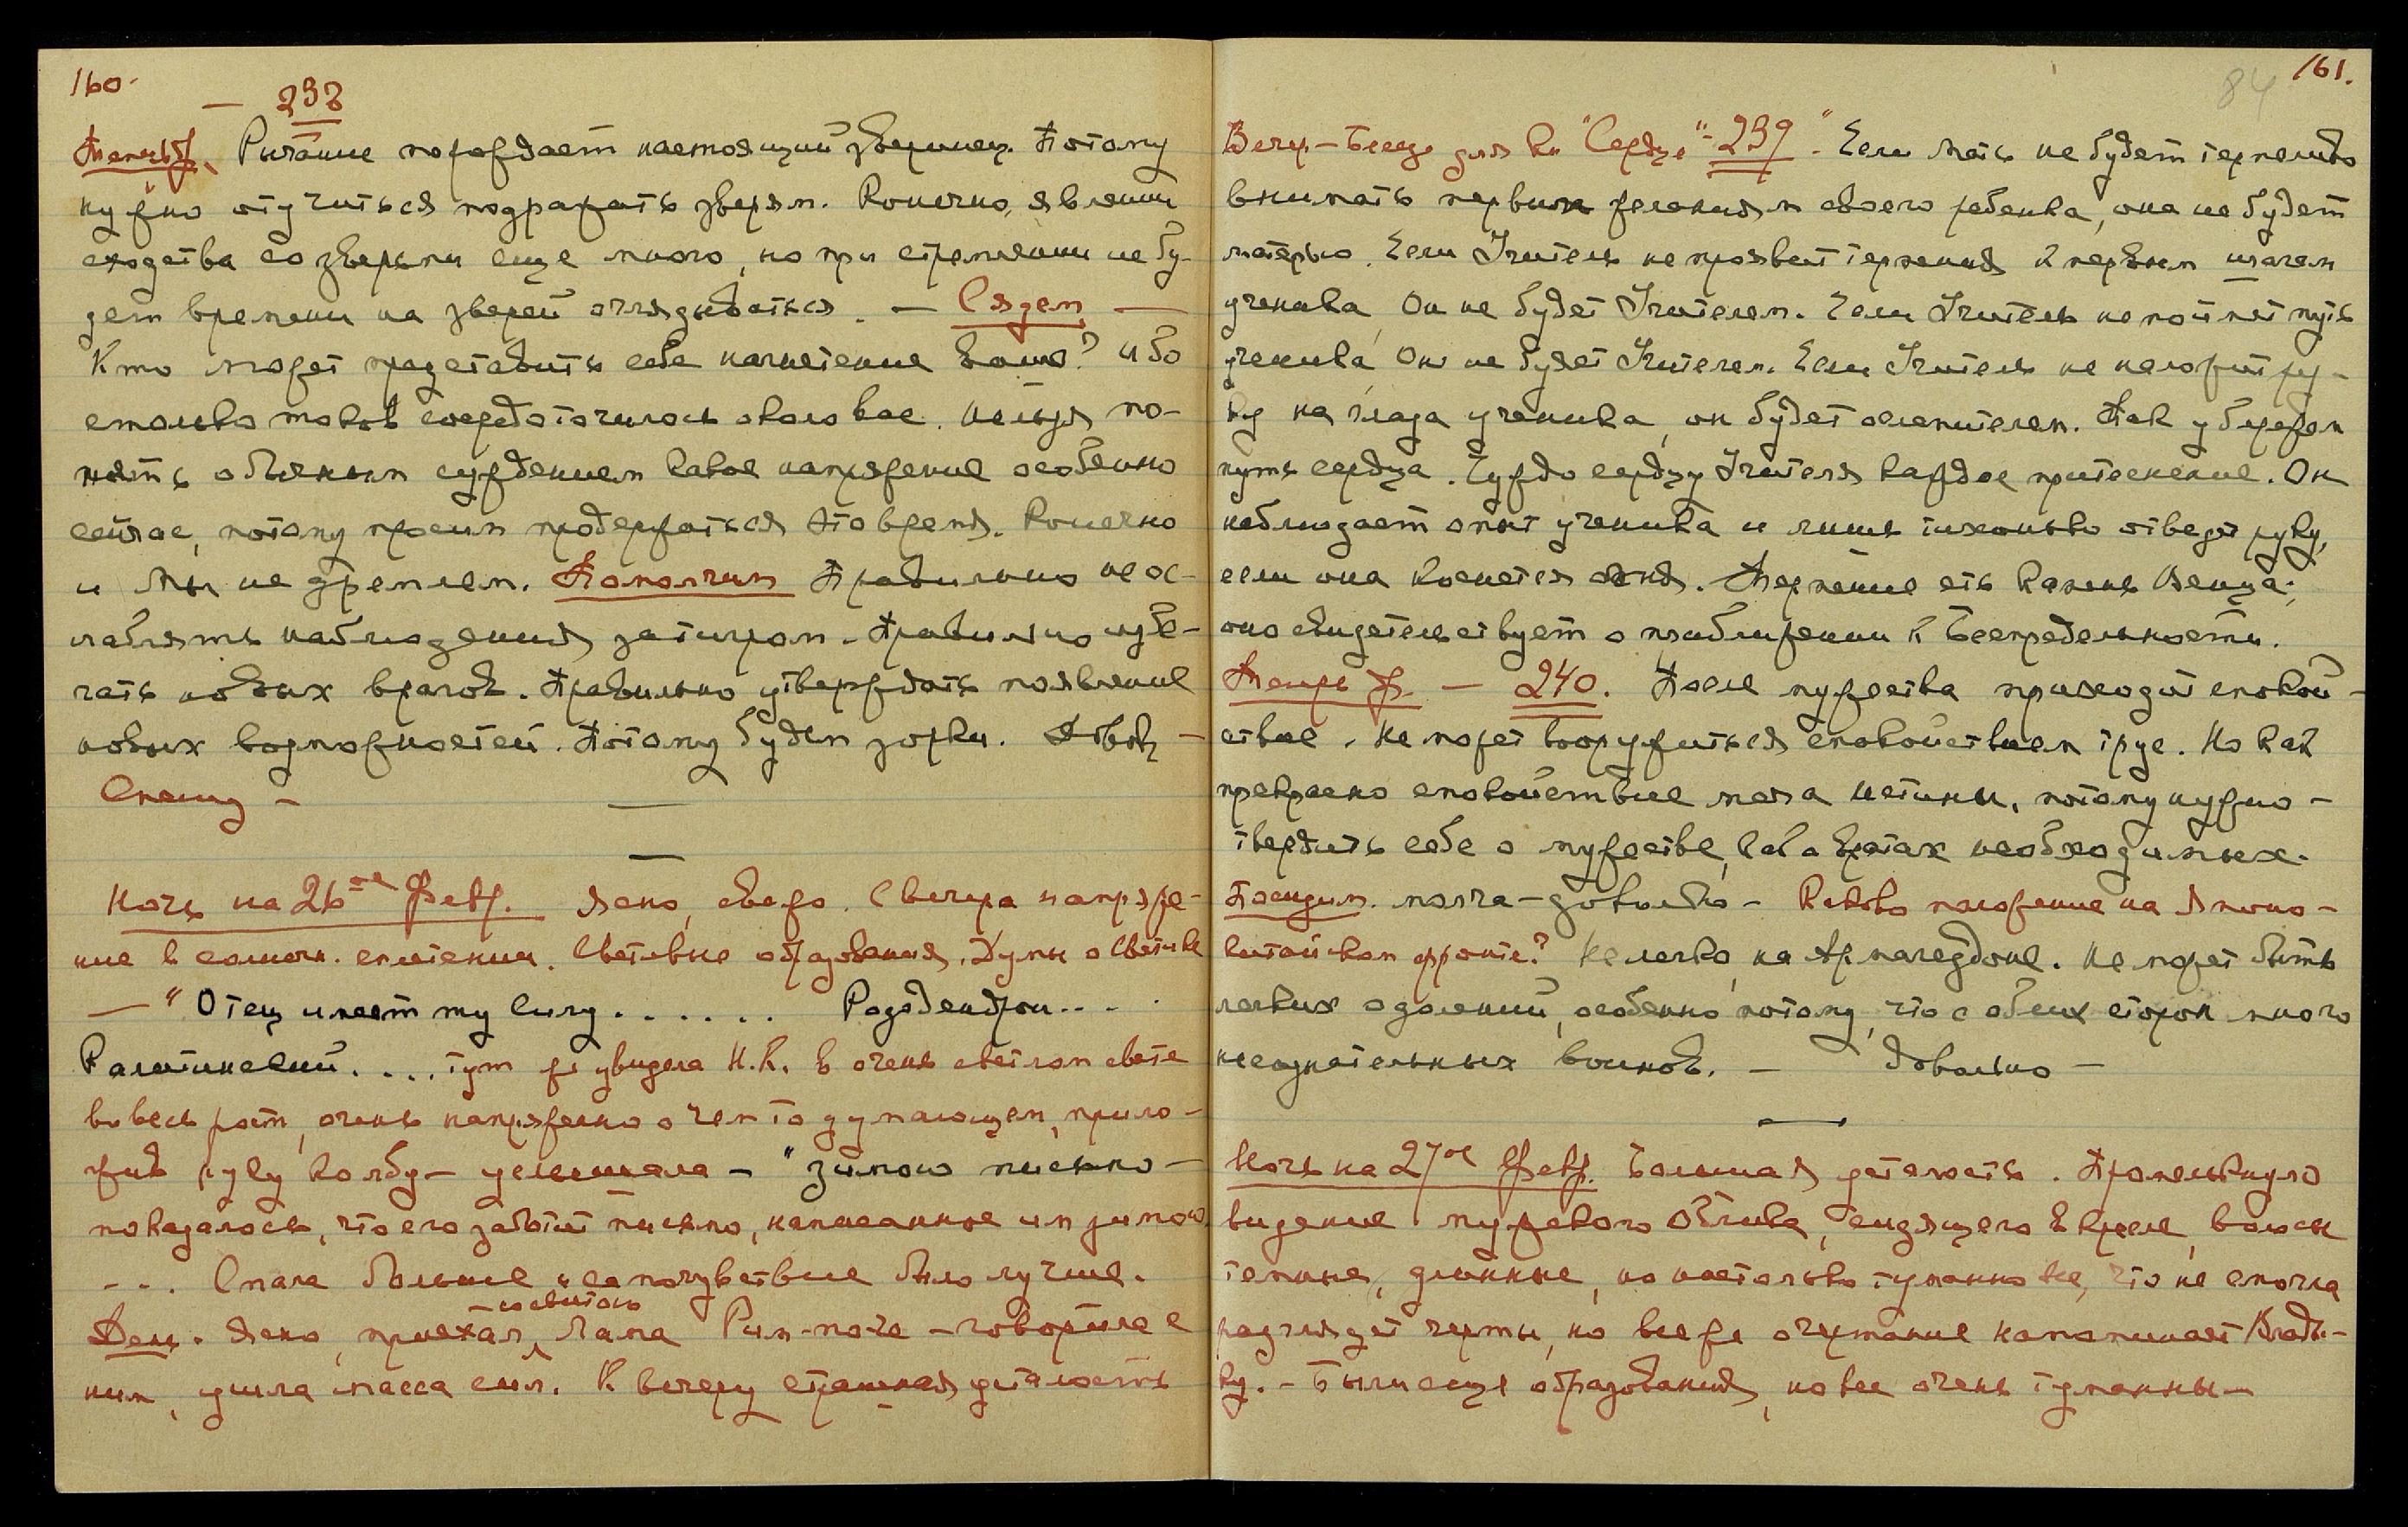 160.
— 238
Теперь ф. Рычание порождает настоящий зверинец. Потому
нужно отучиться подражать зверям. Конечно, явлений
сходства со зверьми еще много, но при стремлении не бу-
дет времени на зверей оглядываться. — Сядем —
Кто может представить себе нагнетение Бою? ибо
столько токов сосредоточилось около вас. Нельзя по-
нять обычным суждением какое напряжение особенно
сейчас, потому просим продержаться это время. Конечно
и Мы не дремлем. Помолчим Правильно не ос-
лаблять наблюдения за тигром. Правильно избе-
гать новых врагов. Правильно утверждать появление
новых возможностей. Потому будем зорки. Довол —
Спешу —
Ночь на 26-ое Февр. Ясно, свежо. С вечера напряже-
ние в солнечн. сплетении. Световые образования. Думы о Свет
— "Отец имеет ту силу . . . . . . Рододендрон . . . .
Калитинский. . . . тут же увидела Н.К. в очень светлом свете
во весь рост, очень напряженно о чем то думающем, прило-
жив руку ко лбу — услышала — "зимою письмо —
показалось, что его заботит письмо, написанное им зимою
. . . Спала больше и самочувствие было лучше.
День. Ясно, приехал со свитою Лама Рин-поче — говорила с
ним, ушла масса сил. К вечеру страшная усталость
161.
84
Вечер — Беседа для кн "Сердце" — 239 — "Если Мать не будет терпеливо
внимать первым желаниям своего ребенка, она не будет
матерью. Если Учитель не проявит терпения к первым шагам
ученика, Он не будет Учителем. Если Учитель не поймет путь
ученика, Он не будет Учителем. Если Учитель не наложит ру-
ку на глаза ученика, он будет ослепителем. Так убережем
путь сердца. Чуждо сердцу Учителя каждое притеснение. Он
наблюдает опыт ученика и лишь тихонько отведет руку,
если она коснется огня. Терпение есть Камень Венца;
оно свидетельствует о приближении к Беспредельности.
Теперь ф. — 240. После мужества приходит спокой-
ствие. Не может вооружиться спокойствием трус. Но как
прекрасно спокойствие меча Истины, потому нужно —
твердить себе о мужестве, как о вратах необходимых.
Посидим. молча — довольно — Каково положение на Японо —
китайском фронте? Не легко, на Армагеддоне. Не может быть
легких одолений, особенно потому, что с обеих сторон много
несознательных воинов. — Довольно —
Ночь на 27ое Февр. Большая усталость. Промелькнуло
видение мужского Облика, сидящего в кресле, волосы
темные, длинные, но настолько туманно все, что не смогла
разглядеть черты, но все же очертание напоминает Влады-
ку. — Были еще образования, но все очень туманны —